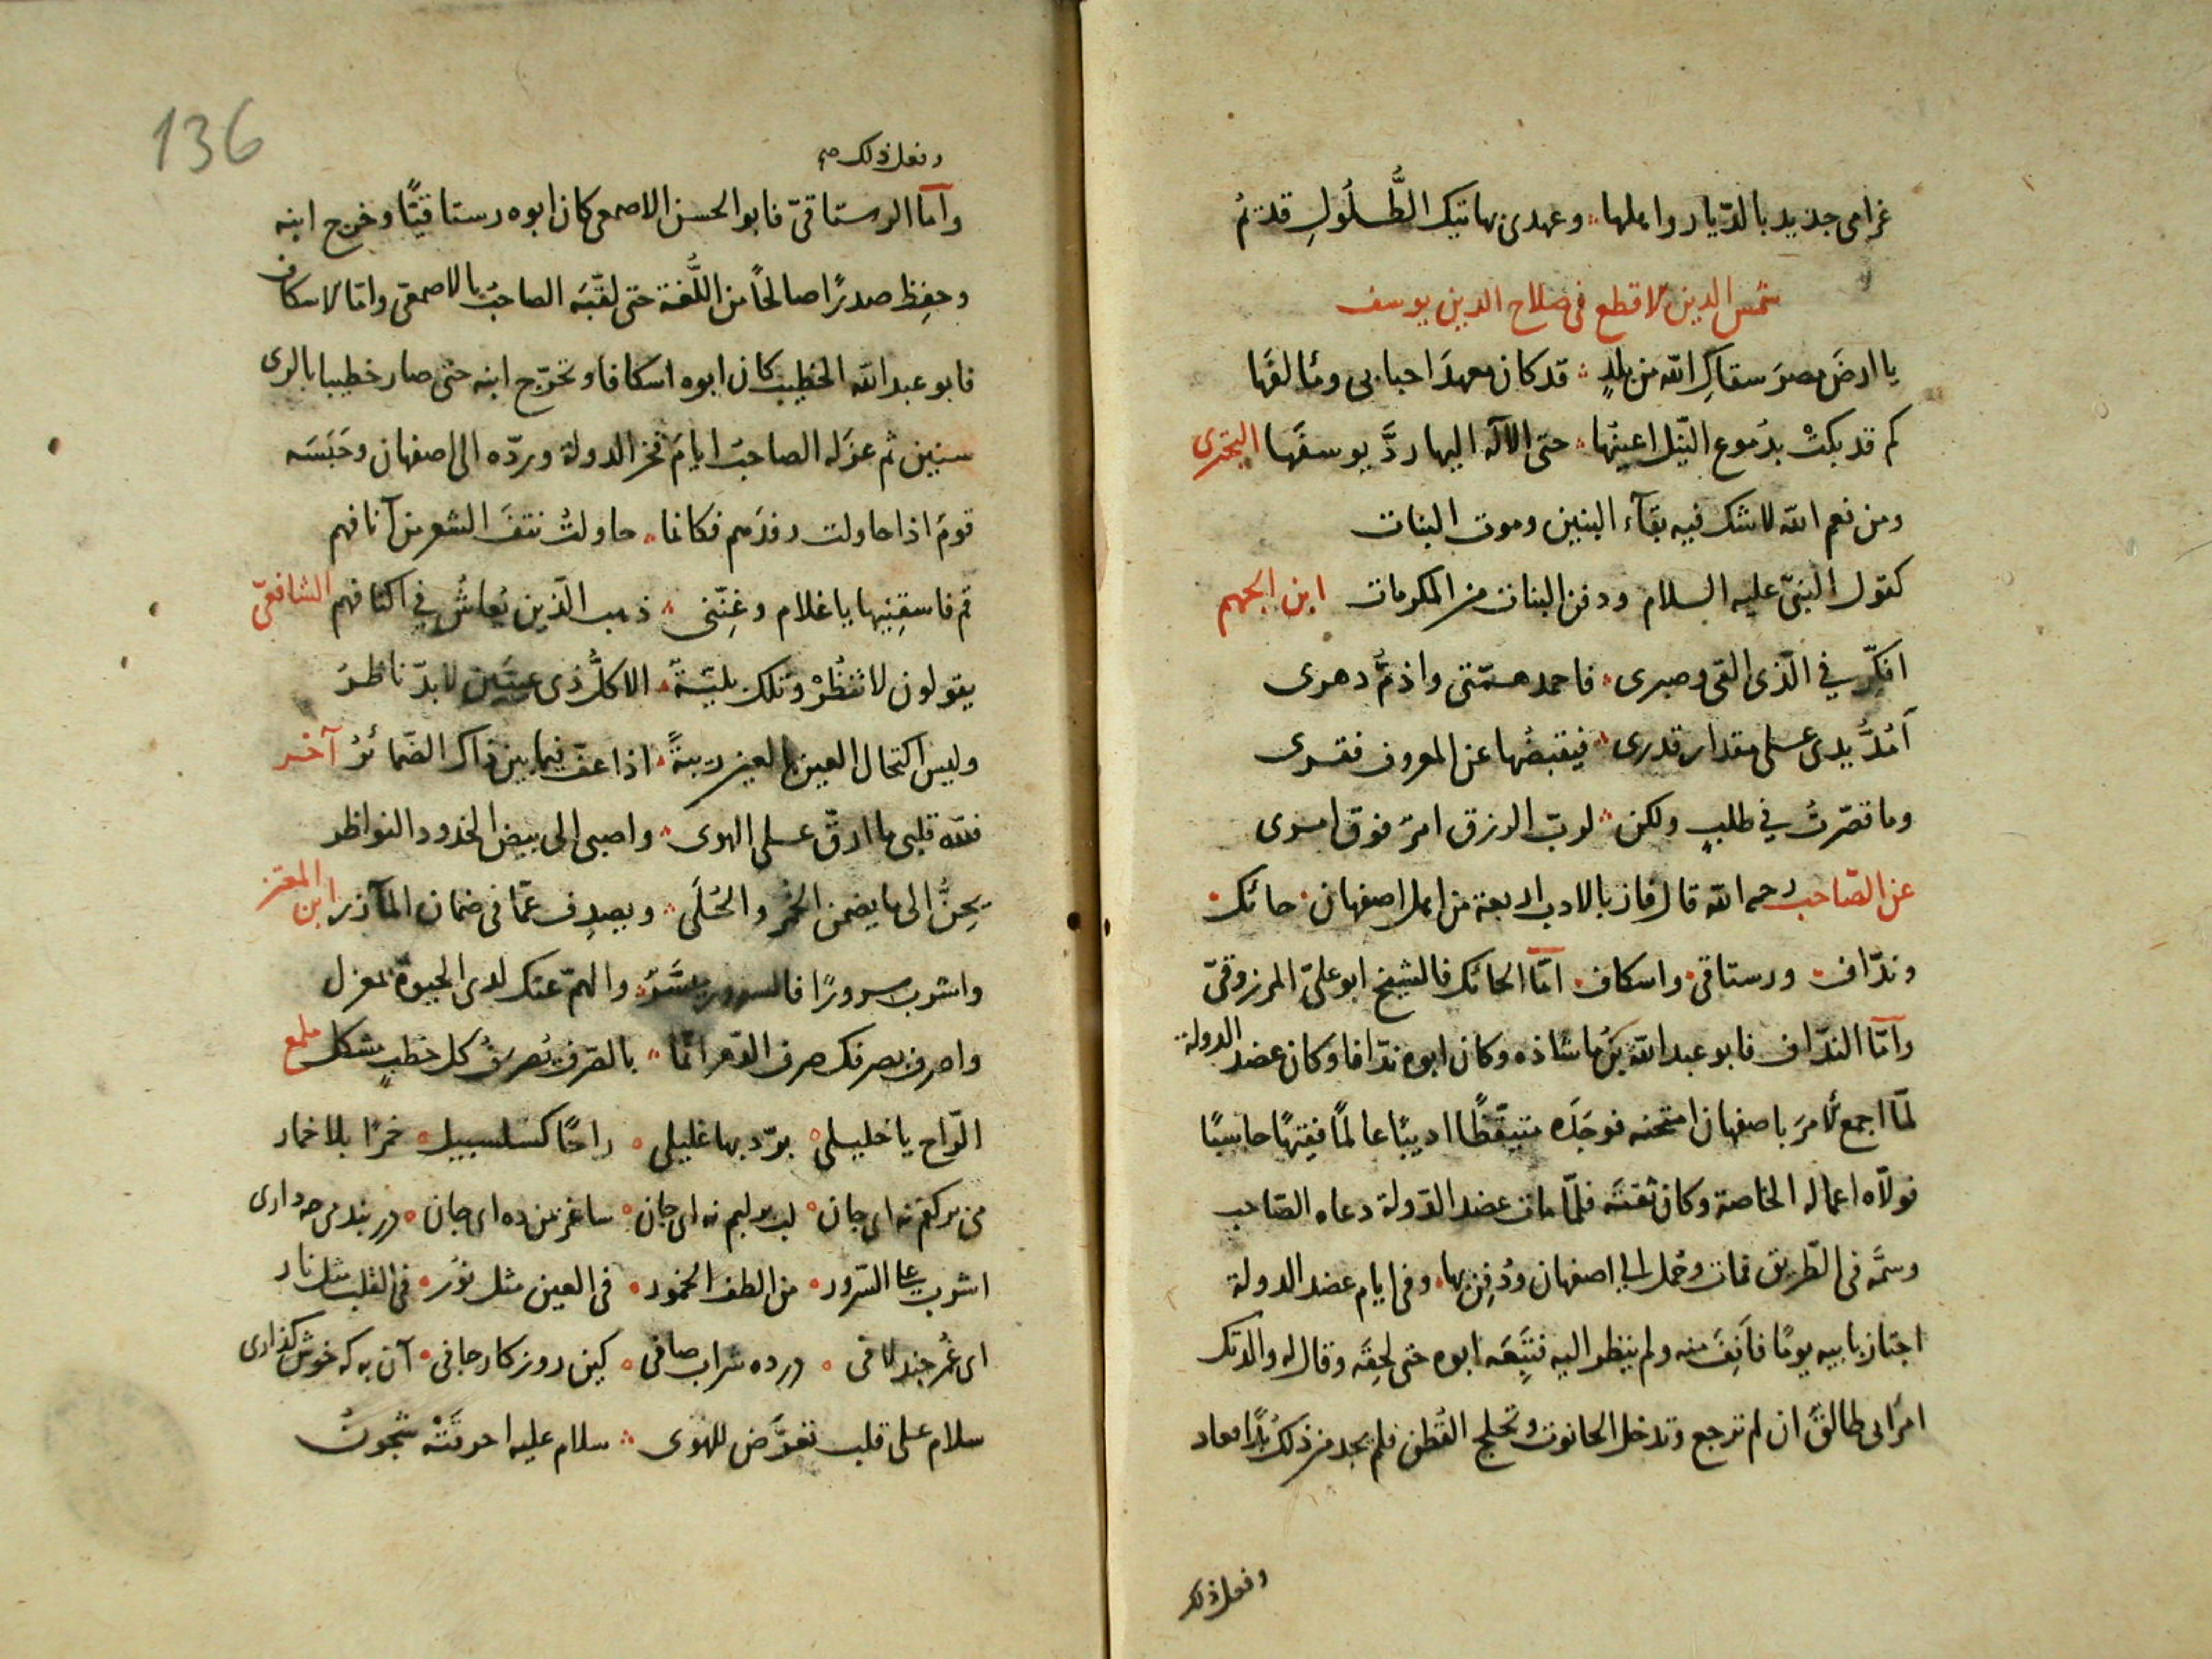 غرامى جديد بالدّيار واهلها ؞ وعهدى بهاتيك الطُّلُولِ قديمُ
شمس الدين الاقطع فى صلاح الدين يوسف
يا ارضَ مصرَ سقاكِ الله من بلدٍ ؞ قد كان معهدَ احبابى ومألفَها
كم قد بكتْ بدُموع النّيل اعينُها ؞ حتى الاله اليها ردَّ يوسفَها البحترى
ومن نعم الله لا شك فيه بقآء البنين وموت البنات
كقول النبىّ عليه السلام ودفن البنات من المكرمات ابن الجهم
افكّر في الّذى القى وصبرى ؞ فاحمد همّتى واذمُّ دهرى
أمُدُّ يدى على مقدار قدرى ؞ فيقبضُها عن المعروف فقرى
وما قصّرتُ في طلبٍ ولكن ؞ لربّ الرزق امرٌ فوق امرى
عن الصّاحب رحمه الله قال فاز بالادب اربعة من اهل اصفهان حائك
وندّاف ورستاقى واسكاف امّا الحائك فالشيخ ابو علىّ المرزوقىّ
وامّا الندّاف فابو عبد الله بن ماشاذه وكان ابوه ندّافا وكان عضد الدولة
لمّا اجمع الامرَ باصفهان امتحنه فوجَدَه متيقّظًا اديبًا عالمًا فقيهًا حاسبًا
فولّاه اعماله الخاصة وكان ثقتَه فلمّا مات عضد الدّولة دعاه الصّاحب
وسمَّه فى الطّريق فمات وحُمل الى اصفهان ودُفِن بها وفى ايام عضد الدولة
اجتاز بابيه يومًا فاَنِفَ منه ولم ينظر اليه فتبِعَه ابوه حتى لحِقَه وقال له والدتك
امرأتى طالقٌ ان لم ترجع وتدخل الحانوت وتحلج القُطن فلم يجد من ذلك بُدًّا فعاد
وفعل ذلك
136
وفعل ذلك صح
وامّا الرستاقىّ فابو الحسن الاصمعى كان ابوه رستاقيًّا وخرج ابنه
وحفِظ صدرًا صالحًا من اللُّغة حتى لقّبَه الصاحبُ بالاصمعىّ وامّا الاسكاف
فابو عبد الله الخطيب كان ابوه اسكافا وتخرّج ابنه حتى صار خطيبا بالرى
سنين ثم عزَله الصاحبُ ايامَ فخر الدولة وردّه الى اصفهان وحَبَسَه
قومٌ اذا حاولت رفدَهم فكانما ؞ حاولتُ نتفَ الشعر من آنافهم
قم فاسقِنِيها يا غلام وغنِّنى ؞ ذهب الّذين يُعاشُ في اكنافهم الشافعىّ
يقولون لا تنظُرْ وتلك بليّةٌ ؞ الا كلُّ ذى عينَين لا بدّ ناظرُ
وليس اكتحال العين بالعين ريبةً ؞ اذا عفّ فيما بين ذاك الضّمائرُ آخر
فلله قلبى ما ارقّ على الهوى ؞ واصبى الى بيض الخدود النواظر
يحِنُّ الى ما يضمن الخُمْر والحُلَى ؞ ويصدِف عمّا فى ضمان المآزر ابن المعتز
واشرب سرورًا فالسرور ميسَّرٌ ؞ والهمّ عنك لدى الحيوة بمعزل
واصرف بصرفك صرف الدّهر انّما ؞ بالصّرف يُصرَفُ كل خطبٍ مشكل ملمع
الرّاح يا خليلى ؞ برّد بها غليلى ؞ راحًا كسلسبيل ؞ خمرًا بلا خمار
مى بر كفم نه اى جان ؞ لب بر لبم نه اى جان ؞ ساغر بمن ده اى جان ؞ در بند مى چه دارى
اشرب على السّرور ؞ من الطف الخمور ؞ فى العين مثل نور ؞ فى القلب مثل نار
اى عُمر چند لافى ؞ در ده شراب صافى ؞ كين روزكار جافى ؞ آن به كه خوش كذارى
سلام على قلب تعرَّض للهوى ؞ سلام عليه احرقَتْه شجونُ